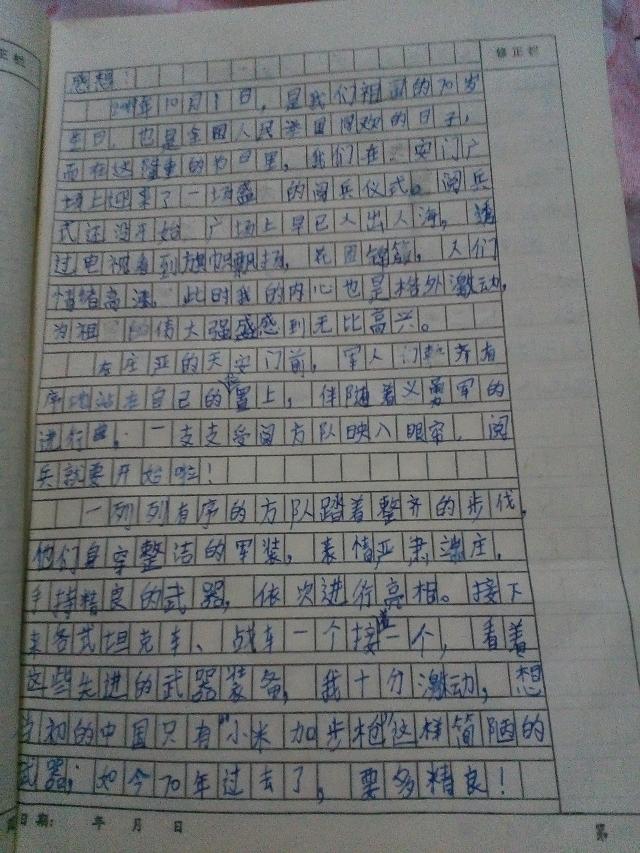 正栏
修正栏
感想：
2019年10月1日，是我们祖国的70岁
生日，也是全国人民举国同欢的日子，
而在这隆重的节日里，我们在 安门广
场上迎来了一场盛 的阅兵仪式。阅兵
式还没开始 广场上早已人出人海，透
过电视看到旗帜飘扬，花团锦簇，人们
情绪高涨，此时我的内心也是格外激动，
为祖 的伟大强盛感到无比高兴。
在庄严的天安门前，军人们 齐有
序地站在自己的位置上，伴随着义勇军的
进行曲，一支支受阅方队映入眼帘，阅
兵就要开始啦！
一列列有序的方队踏着整齐的步伐，
他们身穿整洁的军装，表情严肃端庄，
手持精良的武器，依次进行亮相。接下
来各式坦克车、战车一个接着一个，看着
这些先进的武器装备，我十分激动，想
当初的中国只有“小米加步枪”这样简陋的
武器；如今70年过去了，要多精良！
日期： 年 月 日
第